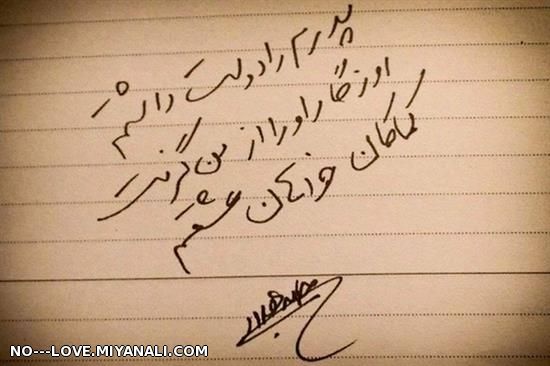 پدرم را دوست داشتم
روزگار او را از من گرفت
کماکان خواهان عشقم
NO---LOVE.MIYANALI.COM